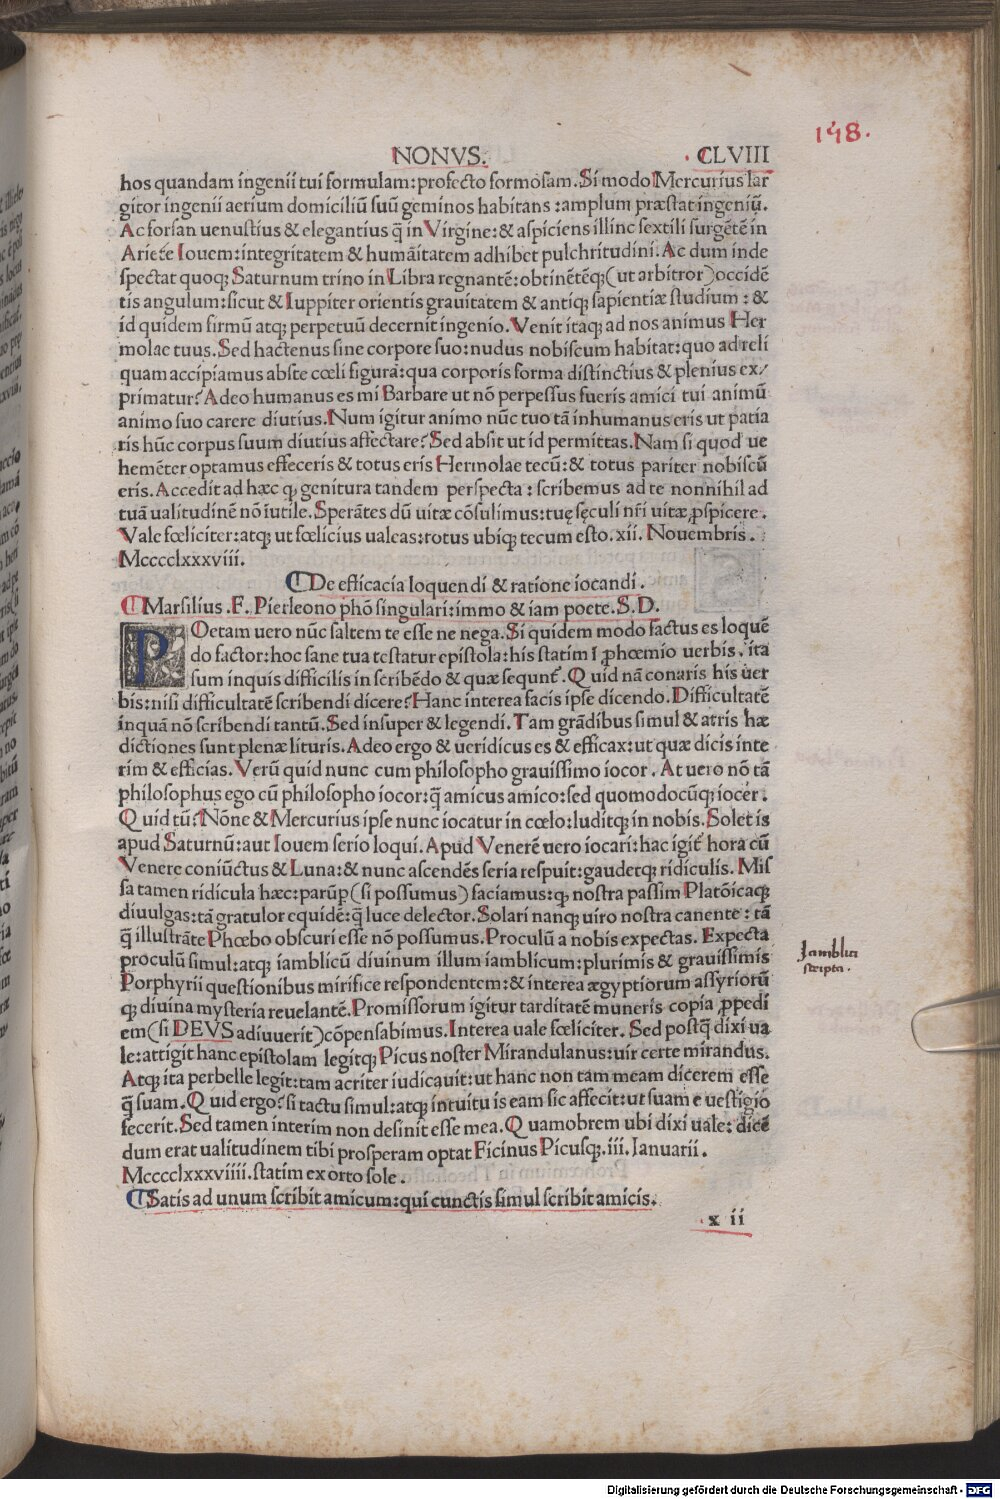 148.
NONVS. CLVIII
hos quandam ingenii tui formulam:profecto formosam.Si modo Mercurius lar
gitor ingenii aerium domiciliū suū geminos habitans :amplum præstat ingeniū.
Ac forsan uenustius & elegantius q̄ in Virgine:& aspiciens illinc sextili surgētē in
Ariete Iouem:integritatem & humāitatem adhibet pulchritudini.Ac dum inde
spectat quoq; Saturnum trino in Libra regnantē:obtinētēq;(ut arbitror)occidē
tis angulum:sicut & Iuppiter orientis grauitatem & antiq; sapientiæ studium : &
id quidem firmū atq; perpetuū decernit ingenio.Venit itaq; ad nos animus Her
molae tuus.Sed hactenus sine corpore suo:nudus nobiscum habitat:quo ad reli
quam accipiamus abste cœli figura:qua corporis forma distinctius & plenius ex/
primatur?Adeo humanus es mi Barbare ut nō perpessus fueris amici tui animū
animo suo carere diutius.Num igitur animo nūc tuo tā inhumanus eris ut patia
ris hūc corpus suum diutius affectare?Sed absit ut id permittas.Nam si quod ue
hemēter optamus effeceris & totus eris Hermolae tecū:& totus pariter nobiscū
eris.Accedit ad hæc q; genitura tandem perspecta : scribemus ad te nonnihil ad
tuā ualitudinē nō iutile.Sperātes dū uitæ cōsulimus:tuę sęculi nr̄i uitæ ꝓspicere.
Vale fœliciter:atq; ut fœlicius ualeas:totus ubiq; tecum esto.xii. Nouembris .
Mcccclxxxviii.
De efficacia loquendi & ratione iocandi .
Marsilius .F. Pierleono phō singulari:immo & iam poete.S.D.
POetam uero nūc saltem te esse ne nega.Si quidem modo factus es loquē
do factor:hoc sane tua testatur epistola:his statim ī ꝓhœmio uerbis . ita
sum inquis difficilis in scribēdo & quæ sequnt̄. Quid nā conaris his uer
bis:nisi difficultatē scribendi dicere?Hanc interea facis ipse dicendo.Difficultatē
inquā nō scribendi tantū.Sed insuper & legendi.Tam grādibus simul & atris hæ
dictiones sunt plenæ lituris.Adeo ergo & ueridicus es & efficax:ut quæ dicis inte
rim & efficias.Verū quid nunc cum philosopho grauissimo iocor . At uero nō tā
philosophus ego cū philosopho iocor:q̄ amicus amico:sed quomodocūq; iocer.
Quid tū?Nōne & Mercurius ipse nunc iocatur in cœlo:luditq; in nobis.Solet is
apud Saturnū:aut Iouem serio loqui.Apud Venerē uero iocari:hac igit̄ hora cū
Venere coniūctus & Luna:& nunc ascendēs seria respuit:gaudetq; ridiculis.Mis
sa tamen ridicula hæc:parūp̱(si possumus)faciamus:q; nostra passim Platōicaq;
diuulgas:tā gratulor equidē:q̄ luce delector.Solari nanq; uiro nostra canente: tā
q̄ illustrāte Phœbo obscuri esse nō possumus.Proculū a nobis expectas. Expecta
proculū simul:atq; iamblicū diuinum illum iamblicum:plurimis & grauissimis
Porphyrii questionibus mirifice respondentem:& interea ægyptiorum assyriorū
q; diuina mysteria reuelantē.Promissorum igitur tarditatē muneris copia ꝓpedi
em(si DEVS adiuuerit)cōpensabimus.Interea uale fœliciter. Sed postq̄ dixi ua
le:attigit hanc epistolam legitq; Picus noster Mirandulanus:uir certe mirandus.
Atq; ita perbelle legit:tam acriter iudicauit:ut hanc non tam meam dicerem esse
q̄ suam.Quid ergo?si tactu simul:atq; intuitu is eam sic affecit:ut suam e uestigio
fecerit.Sed tamen interim non desinit esse mea.Quamobrem ubi dixi uale: dicē
dum erat ualitudinem tibi prosperam optat Ficinus Picusq;.iii.Ianuarii .
Mcccclxxxviiii.statim ex orto sole .
Satis ad unum scribit amicum:qui cunctis simul scribit amicis.
x ii
Jamblici
scripta.
Digitalisierung gefördert durch die Deutsche Forschungsgemeinschaft - DFG